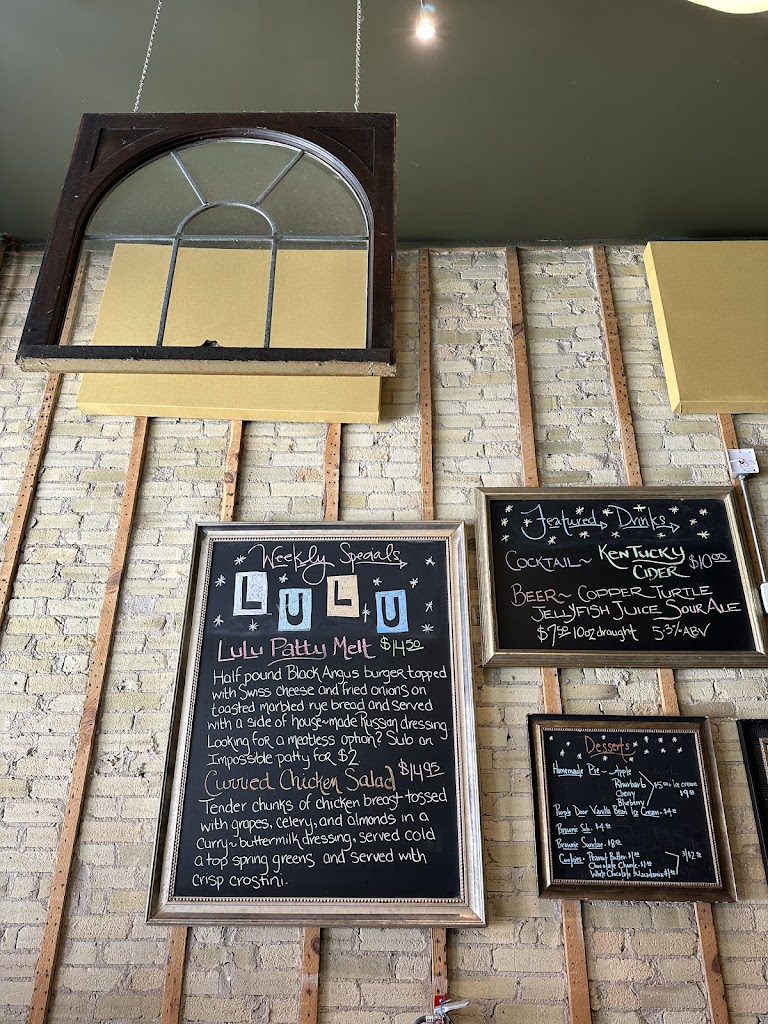 Weekly Specials
LULU
LuLu Patty Melt $14.50
Half pound Black Angus burger topped
with Swiss cheese and fried onions on
toasted marbled rye bread and served
with a side of house~made Russian dressing.
Looking for a meatless option? Sub an
Impossible patty for $2
Curried Chicken Salad $14.95
Tender chunks of chicken breast tossed
with grapes, celery, and almonds in a
curry~buttermilk dressing, served cold
atop spring greens and served with
crisp crostini.
Featured Drinks
COCKTAIL~ KENTUCKY $10.00
CIDER
BEER~ COPPER TURTLE
JELLYFISH JUICE SOUR ALE
$7.50 10oz draught 5.3% ABV
Desserts
Homemade Pie - Apple
Rhubarb
Cherry
Blueberry
+ Ice cream
Purple Door Vanilla Bean Ice Cream
Brownie
Brownie Sundae
Cookies - Peanut Butter
Chocolate Chunk
White Chocolate Macadamia